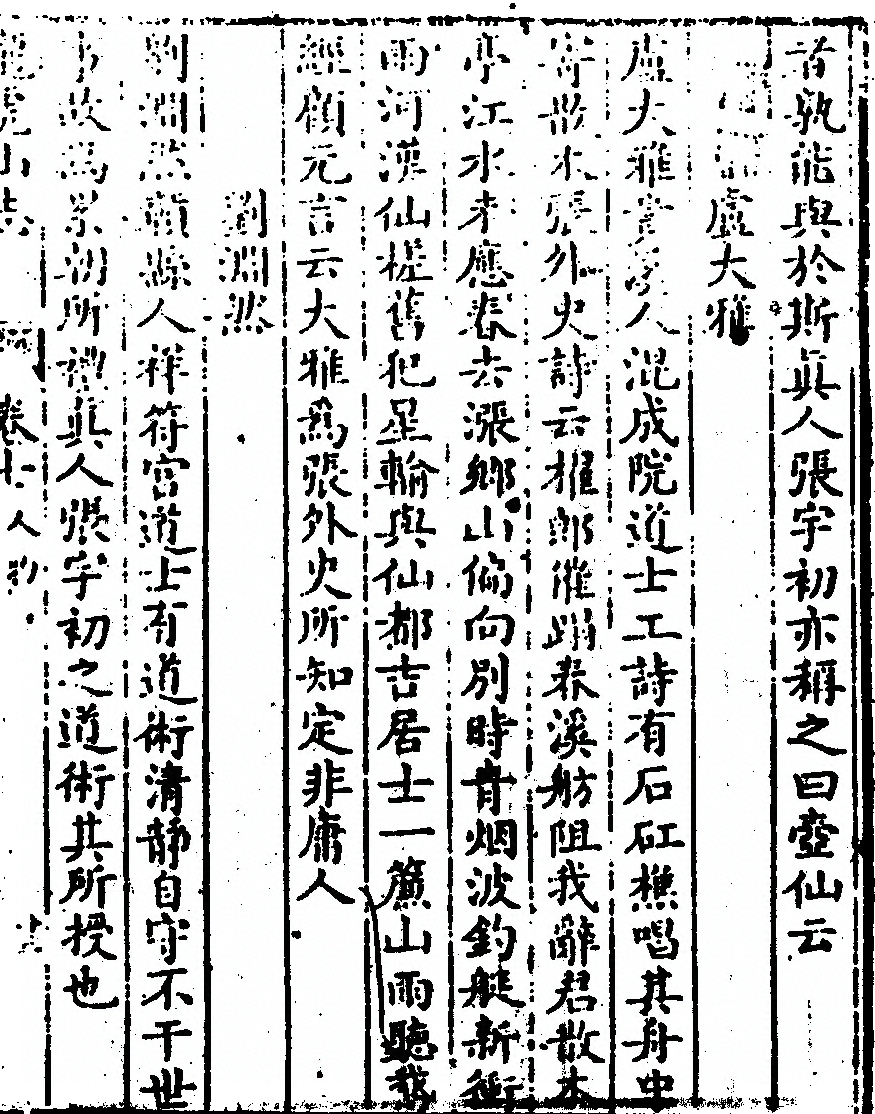 者孰能與於斯眞人張宇初亦稱之曰壺仙云
盧大雅
盧大雅貴溪人混成院道士工詩有石矼樵唱其舟中
寄散木張外史詩云催郎催蹋春溪舫阻我辭君散木
亭江水未應春去漲鄉山偏向別時青烟波釣艇新衝
雨河漢仙槎舊犯星輪與仙都吉居士一簾山雨聽我
經顧元言云大雅爲張外史所知定非庸人
劉淵然
劉淵然贛縣人祥符宮道士有道術清靜自守不干世
事故爲累朝所禮眞人張宇初之道術其所授也
龍虎山志 卷七 人物